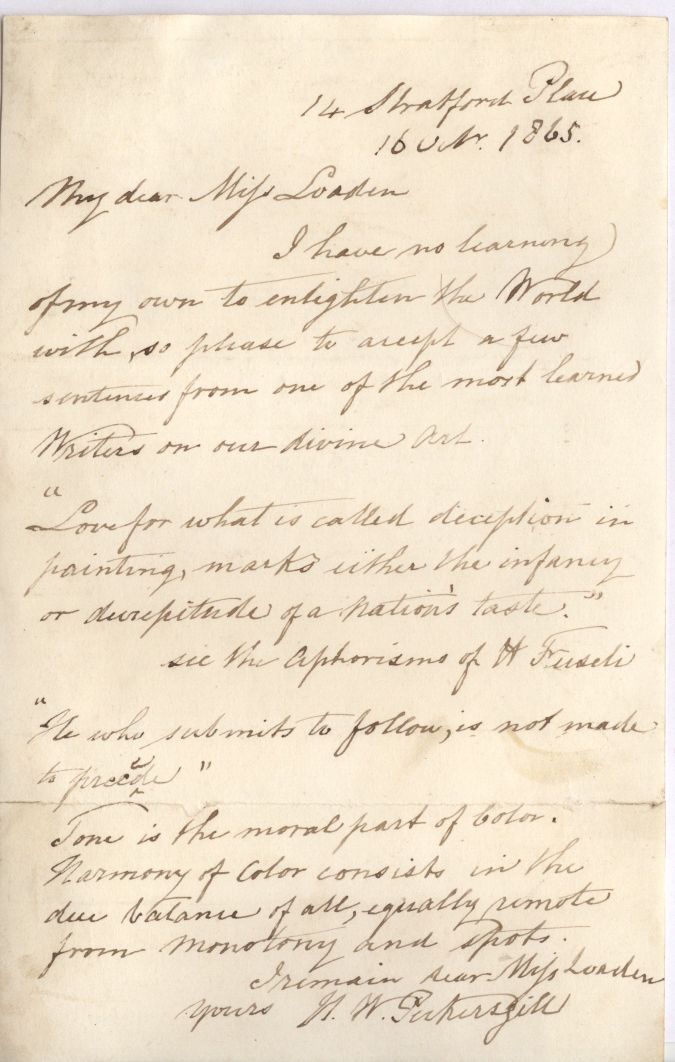 14 Stratford Place
16 Octr. 1865.
My dear Miss Loaden
I have no learning
of my own to enlighten the World
with, so please to accept a few
sentences from one of the most learned
Writers on our divine Art.
"Love for what is called deception in
painting, marks either the infancy
or decrepitude of a Nation's taste."
see the Aphorisms of H Fuseli
"He who submits to follow, is not made
to precede"
Tone is the moral part of Color.
Harmony of Color consists in the
due balance of all, equally remote
from monotony and spots.
I remain dear Miss Loaden
yours H. W. Pickersgill